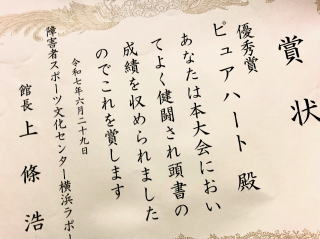 賞状
優秀賞
ピュアハート 殿
あなたは本大会におい
てよく健闘され頭書の
成績を収められました
のでこれを賞します
令和七年六月二十九日
障害者スポーツ文化センター横浜ラポー
館長 上條 浩